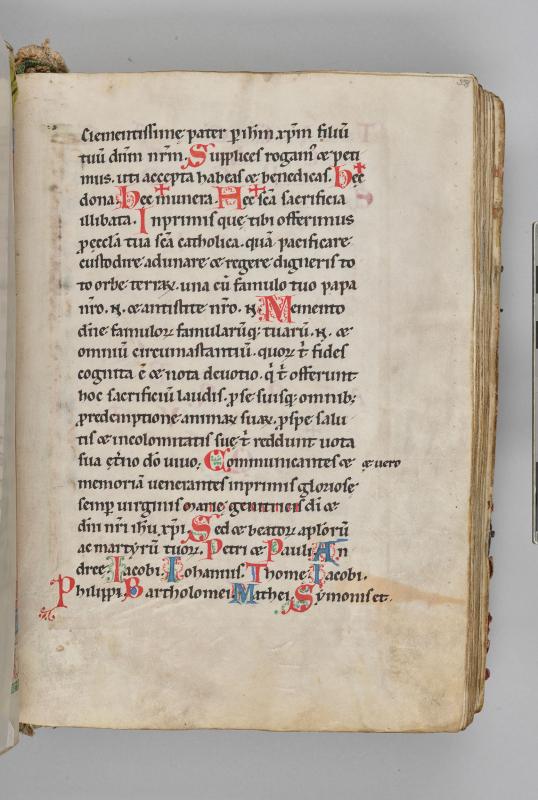 Clementissime pater p ihm xpm filiū
tuū dnm nrm. Supplices rogam' & peti
mus. uti accepta habeas & benedicas. hec
dona. hec munera. Hec scā sacrificia
illibata. Inprimis que tibi offerimus
p eccla tua scā catholica. quā pacificare
custodire adunare & regere digneris to
to orbe terraꝝ. una cū famulo tuo papa
nro. N. & antistite nro. N. Memento
dne famuloꝝ famularūq; tuarū. N. &
omniū circumastantiū. quoꝝ t̄ fides
cognita ē & nota deuotio. q̄ t̄ offerunt
hoc sacrificiū laudis. p se suisq; omnib;
p redemptione animaꝝ suaꝝ. p spe salu
tis & incolomitatis sue t̄ reddunt uota
sua etno dō uiuo. Communicantes & & uero
memoriā uenerantes inprimis gloriose
semp uirginis marie genitricis di &
dni nri ihu xpi. Sed & beatoꝝ aplorū
ac martyrū tuoꝝ. Petri & Pauli. An
dree. Iacobi. Iohannis. Thome. Iacobi.
Philippi. Bartholomei. Mathei. Symonis et